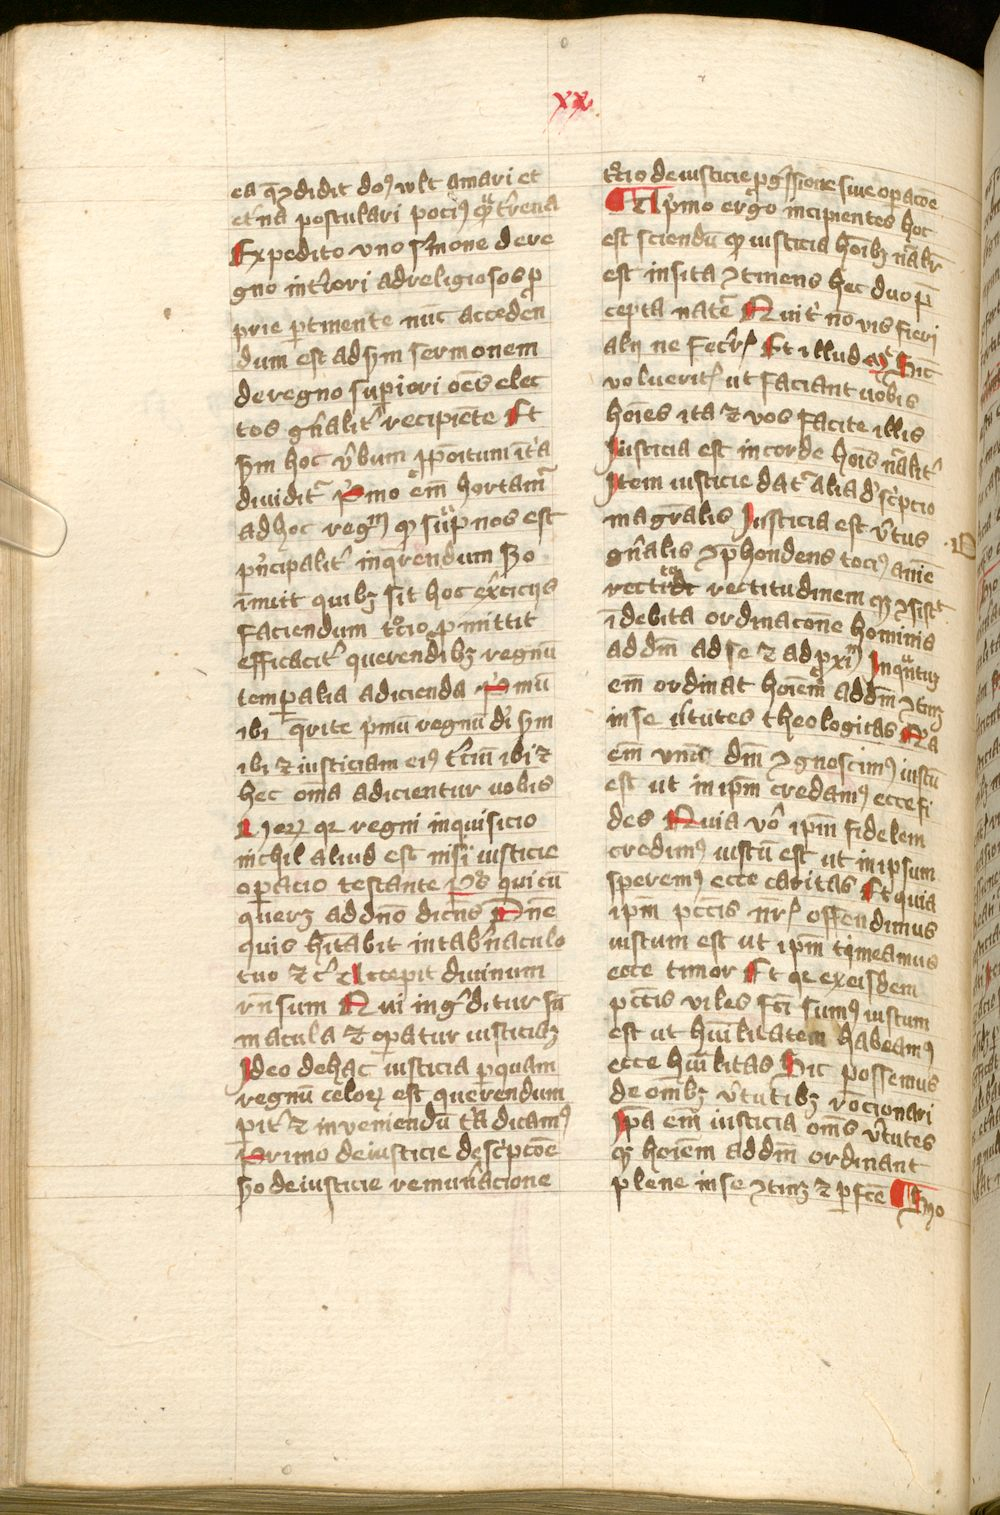 xx
ea que didit dos wlt amari et
et'na postulari poci9 qua t'rena
Expedito vno s'mone de re
gno int'iori ad religiosos p
prie p'tinente nūc acceden
dum est ad s'm sermonem
de regno sup'iori oēs elec
tos gn'alit' recipiēte Et
s'm hoc v'bum ꝓpoitum it'a
diuidit' P'mo em hortam'
ad hoc regm qꝫ sup'nos est
p'ncipalit' inqrendum Sꝫo
īnuit quibꝫ sit hoc ex'cicijs
faciendum t'cio p'mittit
efficacit' querendibꝫ regnū
temp'alia adicienda P'mū
ibi q'rite p'mū regnū di' s'm
ibi ⁊ iusticiam ei9 t'ciū ibi ⁊
hec om̄a adicientur uobis
qr regni inquisicio
nichil aliud est nisi iusticie
op'acio testante qui cū
quer'ꝫ ad dn̄o dicens Dn̄e
quis h'itabit in tab'naculo
tuo ⁊ c' Accepit diuinum
rn̄sum Qui ing'ditur sn̄
macula ⁊ op'atur iusticiaꝫ
Ideo de hac iusticia p' quam
regnū celoꝝ est querendum
pit' ⁊ inveniendū t'a dicam9
Primo de iusticie desc'pcōe
Sꝫo de iusticie remun'acione
t'cio de iusticie p'g'ssione siue op'acōe
A p'mo ergo incipientes hoc
est sciendū qꝫ iusticia hoibꝫ n'alr'
est insita ⁊tinens hec duo p̄
cepta nat'e Quit' no vis fieri
alij ne fec'is Et illud Sic
volueritꝭ ut faciant uobis
hoīes ita ⁊ vos facite illis
Iusticia est in corde hois n'alit'
Item iusticie dat' alia d'sc'pcio
magralis Iusticia est v'tus
gn'alis ⁊p'hendens toci9 anie
rectitudi rectitudinem qꝫ ⁊sist'
ī debita ordinacōne hominis
ad dm̄ ad se ⁊ ad pxim' Inqntuꝫ
em ordinat hoīem ad dm̄ ⁊tinꝫ
in se v'tutes theologicas Na
em vnū dm̄ ⁊gnoscim9 iustū
est ut in ipm̄ credam9 ecce fi
des Quia vo' ipm̄ fidelem
credim9 iustū est ut in ipsum
sperem9 ecce caritas Et quia
ipm̄ pctīs nr'ꝭ offendimus
iustum est ut ipm̄ timeamus
ecce timor Et qr ex eisdem
pctīs viles fc̄i sum9 iustum
est ut hu'ilitatem habeam9
ecce hu'ilitas Sic possemus
de om̄ibꝫ v'tutibꝫ rōcionari
Ipa em iusticia om̄s v'tutes
qꝫ hoīem ad dm̄ ordinant
plene in se ⁊tinꝫ ⁊ p'fcē Sꝫo